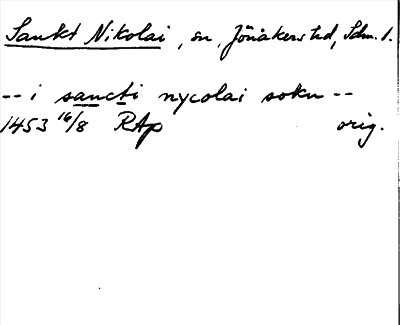 Sankt Nikolai, sn, Jönåkers hd, Sdm. 1.
-- i sancti nycolai sokn --
1453 16/8 RAp orig.